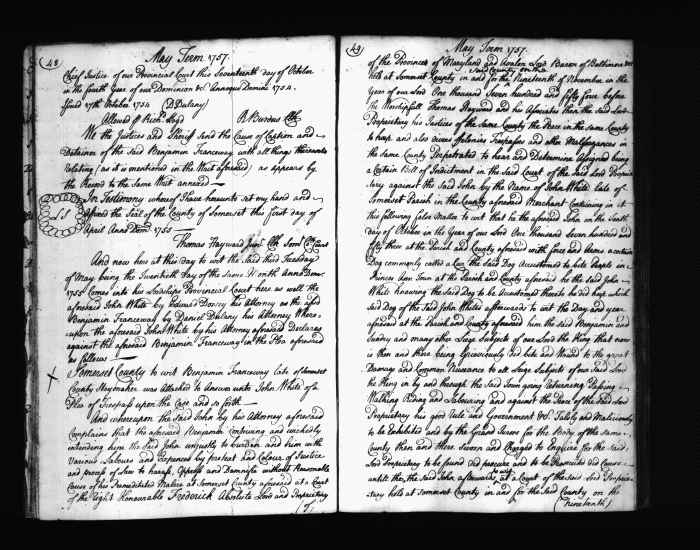 48
May Term 1757.
Chief Justice of our Provincial Court this Seventeenth day of October
in the fourth Year of our Dominion &c Annoque Domini 1754.
Issued 17th October 1754 (D Dulany)
Allowed P Rich. Lloyd R Burdus Clk
We the Justices and Sherif Send the Cause of Caption and
Detainer of the Said Benjamin Franceway with all things thereunto
Relating (as it is mentioned in the Writ aforesaid) as appears by
the Record to the Same Writ annexed
In Testimony whereof I have hereunto set my hand and
Affixed the Seal of the County of Somerset this first day of
April Anno Dom 1755
Thomas Hayward Clk Som Court
And now here at this day to wit the Said third Tuesday
of May being the Twentieth Day of the Same Month Anno Dom
1755 Comes into his Lordships Provincial Court here as well the
aforesaid John White by Edward Dorsey his Attorney as the Said
Benjamin Franceway by Daniel Dulany his Attorney Where
upon the aforesaid John White by his Attorney aforesaid Declares
against the aforesaid Benjamin Franceway in the Plea aforesaid
as follows
Somerset County to wit Benjamin Franceway late of Somerset
County was Attached to Answer unto John White of a
Plea of Trespass upon the Case and so forth
And whereupon the Said John by his Attorney aforesaid
Complains that the aforesaid Benjamin Contriving and wickedly
intending him the Said John unjustly to burden and him with
Various Labours and Expences by pretext and Colour of Justice
and process of Law to harass Oppress and Damnifie without Reasonable
Cause of his Premeditated Malice at Somerset County aforesaid at a Court
of the Right Honourable Frederick Absolute Lord and Proprietary
of
49
May Term 1757.
of the Province of Maryland and Avalon Lord Baron of Baltimore &c
held at Somerset County in and for the Said County on the Nineteenth of November in the
Year of our Lord One thousand Seven hundred and fifty four before
the Worshipfull Thomas Hayward and his Associates then the Said Lord
Proprietary his Justices of the Same County the Peace in the Same County
to keep and also divers Felonies Trespasses and other Malfeasances in
the Same County Perpetrated to hear and Determine Assigned being
a Certain Bill of Indictment in the Said Court of the Said Lord Proprie
tary against the Said John by the Name of John White late of
Somerset Parish in the County aforesaid Merchant Containing in it
this following false Matter to wit that he the aforesaid John on the tenth
day of October in the Year of our Lord One Thousand Seven hundred and
fifty three at the Parish and County aforesaid with force and Arms a certain
Dog commonly called a Cur the Said Dog Accustomed to bite People in
Princes Ann Town at the Parish and County aforesaid he the Said John
White knowing the Said Dog to be Accustomed thereto he did keep which
Said Dog of the Said John White afterwards to wit the Day and Year
aforesaid at the Parish and County aforesaid him the Said Benjamin and
Sundry and many other Liege Subjects of our Lord the King that now
is then and there being Greivously did bite and Wound to the great
Damage and Common Nuisance to all Liege Subjects of our Said Lord
the King in by and through the Said Town going Returning Passing
Walking Riding and Labouring and against the Peace of the Said Lord
Proprietary his good Rule and Government &c Falsely and Maliciously
to be Exhibited and by the Grand Jurors for the Body of the Same
County then and there Sworn and Charged to Enquire for the Said
Lord Proprietary to be found did procure and to be Prosecuted did Cause
untill then the Said John afterwards to wit at a Court of the Said Lord Proprie
tary held at Somerset County in and for the Said County on the
Nineteenth